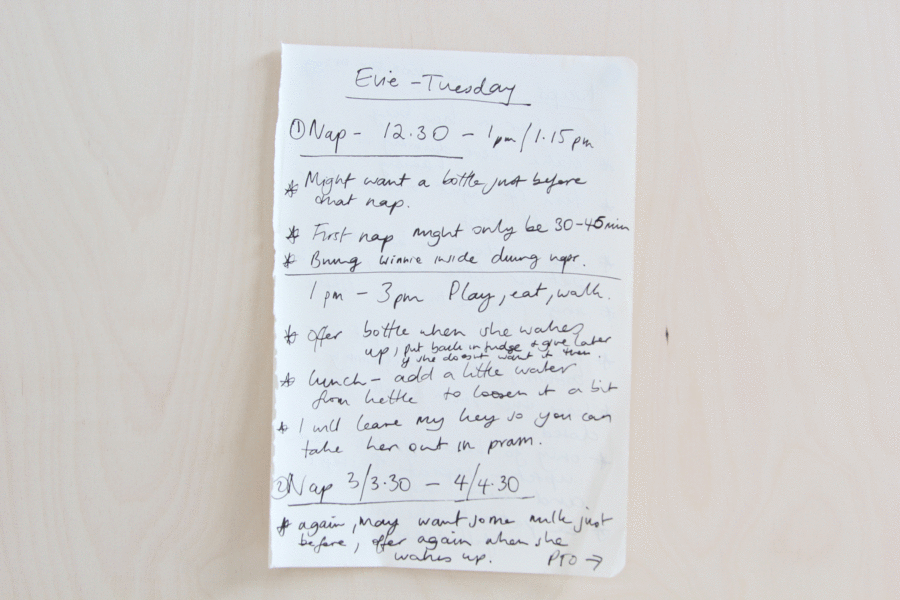 Evie - Tuesday
① Nap - 12.30 - 1pm/1.15pm
* Might want a bottle just before
that nap.
* First nap might only be 30-45min
* Bring Winnie inside during naps.
1pm - 3pm Play, eat, walk.
* Offer bottle when she wakes
up, put back in fridge & give later
if she doesn't want it then.
* Lunch - add a little water
from kettle to loosen it a bit
* I will leave my key so you can
take her out in pram.
② Nap 3/3.30 - 4/4.30
* again, may want some milk just
before, offer again when she
wakes up.
PTO →